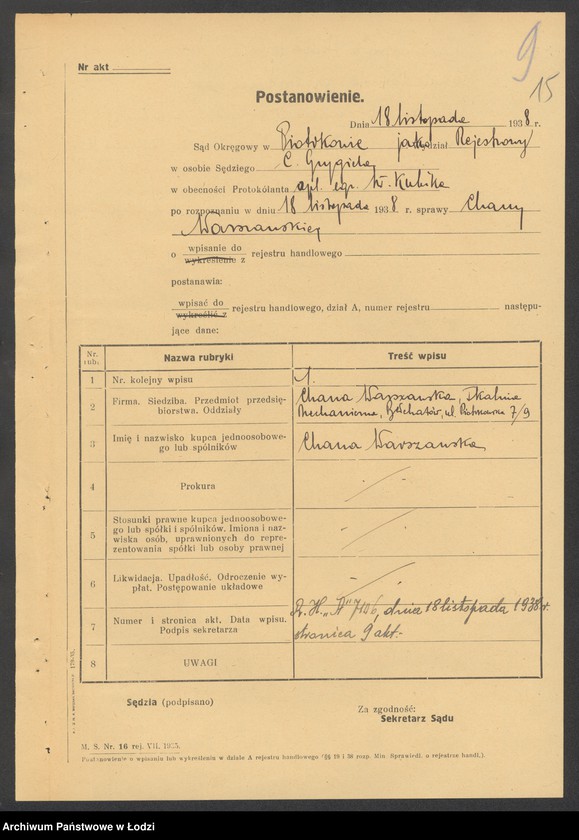 9
15
Nr akt
Postanowienie.
Dnia 18 listopada 1938 r.
Sąd Okręgowy w Piotrkowie jako Rejestrowy
w osobie Sędziego
w obecności Protokólanta apl. egz. W. Kubika
po rozpoznaniu w dniu 18 listopada 1938 r. sprawy Chany
Warszawskiej
o wpisanie do
wykreślenie z rejestru handlowego
postanawia:
wpisać do
wykreślić z rejestru handlowego, dział A, numer rejestru następu-
jące dane:
Nr. rub. Nazwa rubryki Treść wpisu
1 Nr. kolejny wpisu 1.
2 Firma. Siedziba. Przedmiot przedsię-
biorstwa. Oddziały
Chana Warszawska, Tkalnia
Mechaniczna, Bełchatów, ul. Piotrkowska 7/9
3 Imię i nazwisko kupca jednoosobowe-
go lub spólników
Chana Warszawska
4 Prokura
5 Stosunki prawne kupca jednoosobowe-
go lub spółki i spólników. Imiona i naz-
wiska osób, uprawnionych do repre-
zentowania spółki lub osoby prawnej
6 Likwidacja. Upadłość. Odroczenie wy-
płat. Postępowanie układowe
7 Numer i stronica akt. Data wpisu.
Podpis sekretarza
R. H. „A" 7106, dnia 18 listopada 1938 r.
stronica 9 akt.-
8 UWAGI
Sędzia (podpisano)
Za zgodność:
Sekretarz Sądu
M. S. Nr. 16 rej. VII. 1935.
Postanowienie o wpisaniu lub wykreśleniu w dziale A rejestru handlowego (§§ 19 i 36 rozp. Min. Sprawiedl. o rejestrze handl.).
Archiwum Państwowe w Łodzi